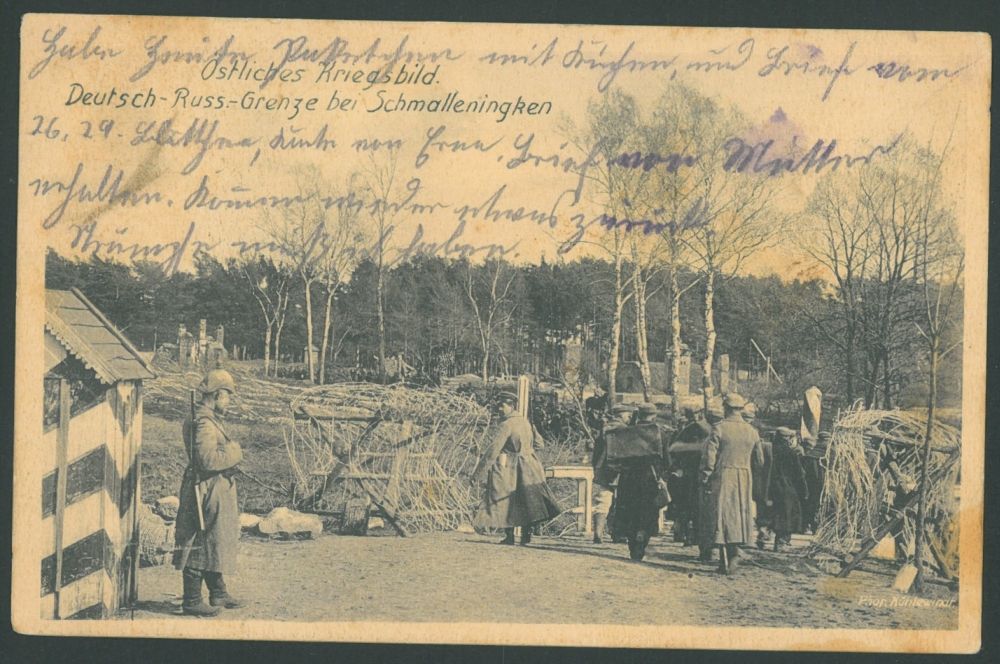 Habe Heute Paketchen mit Kuchen, und Brief vom
Östliches Kriegsbild.
Deutsch-Russ.-Grenze bei Schmalleningken
26. 29. Karte von Erna, Brief von Mutter
erhalten. Kommen wieder etwas zurück.
Strümpfe haben.
Phot. Kühlewindt